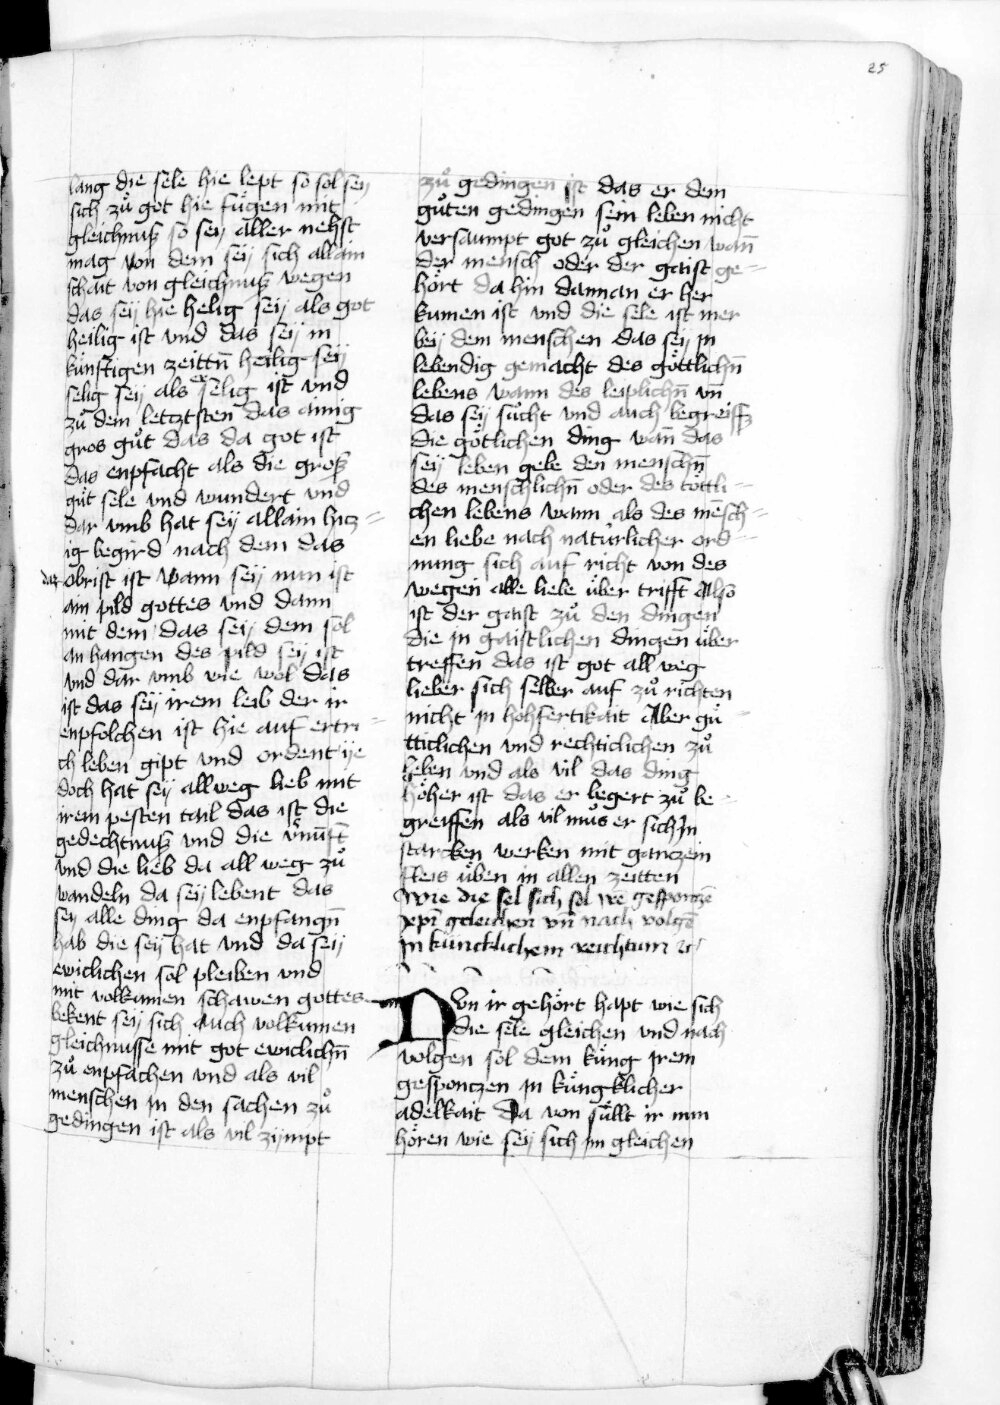 25
lang die sele hie lept so sol seÿ
sich zuͦ got hie fuͤgen mit
gleichnuß so seÿ aller nehst
mag von dem seÿ sich allain
schait von gleichnuß wegen
das seÿ hie helig seÿ als got
heilig ist vnd das seÿ in
kunftigen zeittn̄ heilig seÿ
selig seÿ als er selig ist vnd
zuͦ dem letztsten das ainig
gros guͦt das da got ist
das enpfacht als die groß
guͦt sele vnd wundert vnd
dar vmb hat seÿ allain hitz=
ig begird nach dem das
das obrist ist Wann seÿ nun ist
ain pild gottes vnd dann
mit dem das seÿ dem sol
an hangen des pild seÿ ist
vnd dar vmb wie wol das
ist das seÿ irem leib der ir
enpfolchen ist hie auf ertri=
ch leben gipt vnd ordent ÿe
doch hat seÿ allweg lieb mit
irem pesten tail das ist die
gedechtnuß vnd die v̄nuft
vnd die lieb da all weg zuͦ
wandeln da seÿ lebent das
seÿ alle ding da enpfangn̄
hab die seÿ hat vnd da seÿ
ewiclichen sol pleiben vnd
mit volkumen schawen gottes
bekent seÿ sich Auch volkumen
gleichnusse mit got ewiclichn̄
zuͦ enpfachen vnd als vil
menschen in den sachen zuͦ
gedingen ist als vil zÿmpt
zuͦ gedingen ist das er dem
guͦten gedingen sein leben nicht
versaumpt got zuͦ gleichen wan̄
der mensch oder der gaist ge=
hoͤrt da hin dannan er her
kumen ist vnd die sele ist mer
beÿ dem menschen das seÿ in
lebendig gemacht des goͤttlichn̄
lebens wann des leiplichn̄ vn̄
das seÿ suͦcht vnd auch begreiff
die goͤtlichen ding wan̄ das
seÿ leben gebe den menschn̄
des menschlichn̄ oder des toͤttli=
chen lebens wann als des me̅sch=
en liebe nach natuͤrlicher ord=
nung sich auf richt von des
wegen alle liebe uͤber trifft Also
ist der gaist zuͦ den dingen
die in gaistlichen dingen uͤber
treffen das ist got all weg
lieber sich selber auf zuͦ richten
nicht in hohfertikait Aber guͤ=
tticlichen vnd rechticlichen zuͦ
leben vnd als vil das ding
hoͤher ist das er begert zuͦ be=
greiffen als vil muͦs er sich in
starcken werken mit ganczem
fleis uͤben in allen zeitten
Wie die sel sich sol irē gesponczē
xp̄i geleichen vn̄ nach volgē
in kuncklichem reichtum
Nvn ir gehoͤrt hapt wie sich
die sele gleichen vnd nach
volgen sol dem kuͤng irem
gesponczen in kuͤngklicher
adelkait Da von suͤllt ir nun
hoͤren wie seÿ sich im gleichen